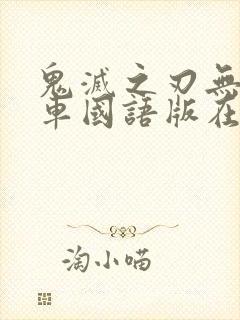 鬼滅之刃無
車國語版在
淘小喵